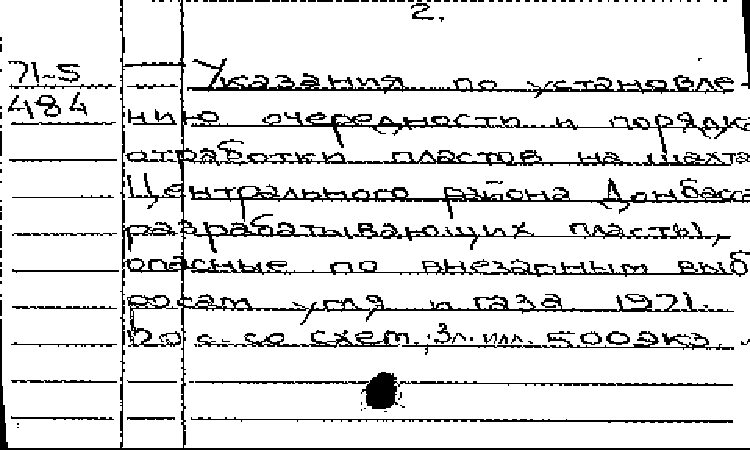 2.
71-5 — Указания по установле-
484 нию очередности и порядка
отработки пластов на шахта
Центрального района Донбасса
разрабатывающих пласты,
опасные по внезапным выб
росам угля и газа 1971.
20 с. со схем.; 3л. илл. 500экз